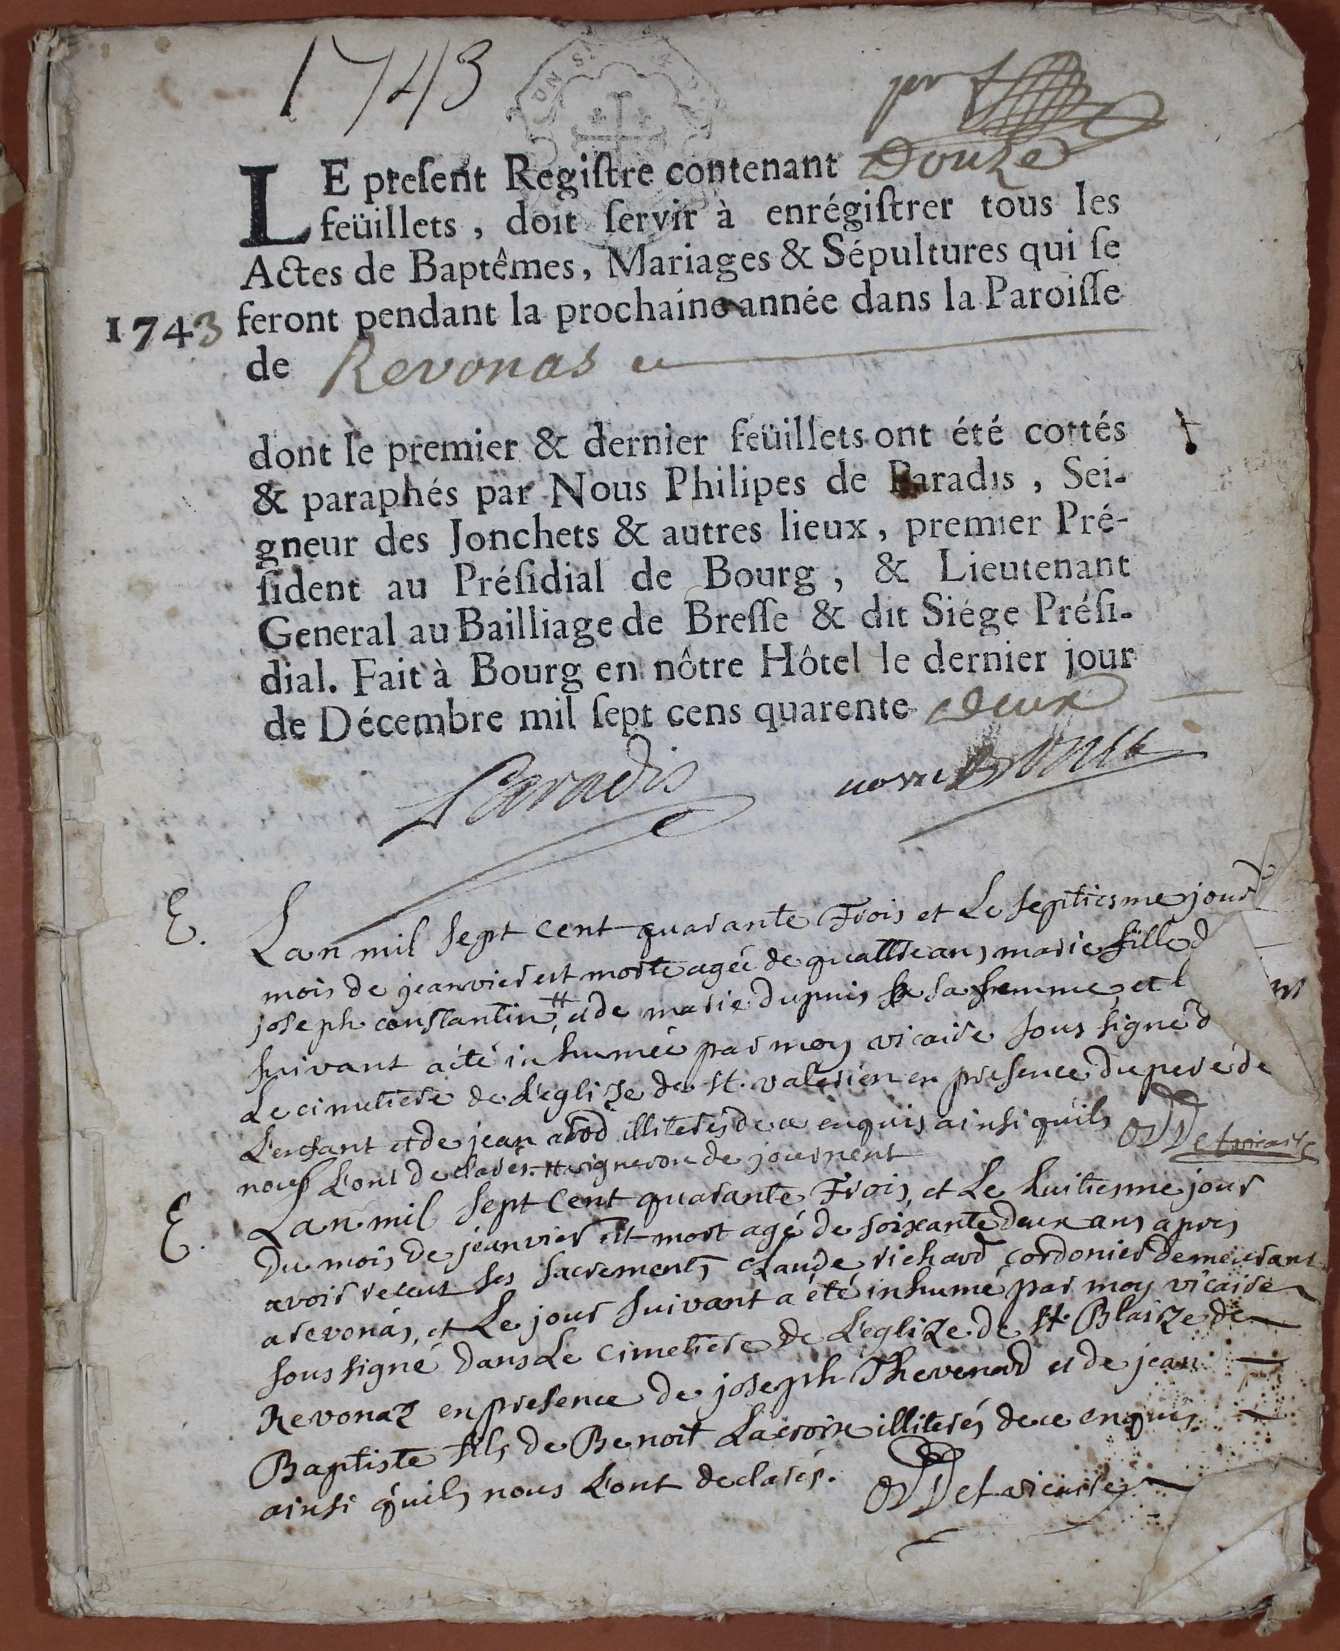 1743
LE preſent Regiſtre contenant Douze
feüillets, doit ſervir à enrégiſtrer tous les
Actes de Baptêmes, Mariages & Sépultures qui ſe
1743 feront pendant la prochaine année dans la Paroiſſe
de Revonas
dont le premier & dernier feüillets ont été cottés
& paraphés par Nous Philipes de Paradis, Sei-
gneur des Jonchets & autres lieux, premier Pré-
ſident au Préſidial de Bourg, & Lieutenant
General au Bailliage de Breſſe & dit Siége Préſi-
dial. Fait à Bourg en nôtre Hôtel le dernier jour
de Décembre mil ſept cens quarente deux
Paradis
E. Lan mil sept cent quarante Trois et Le septiesme jour
mois de jeanvier est morte agée de quattre ans marie fille d
joseph constantin # et de marie dupuis sa femme, et l
suivant a été inhumée par moy vicaire sous signé d
Le cimetiere de L'eglize de st. valerien en presence du pere de
L'enfant et de jean arod illiterés de ce enquis ainsi quils
nous L'ont declarés. # vigneron de journent
E. Lan mil sept Cent quarante Trois, et Le huitiesme jour
Du mois de jeanvier est mort agé de soixante deux ans apres
avoir receut ses sacrements Claude richard cordonier demeurant
a revonas, et Le jour suivant a été inhumé par moy vicaire
sous signé dans Le cimetiere de L'eglize de st. Blaize de
Revonaz en presence de joseph Thevenard et de jean
Baptiste fils de Benoit Lacroix illiterés de ce enquis
ainsi quils nous L'ont declarés. vicaire